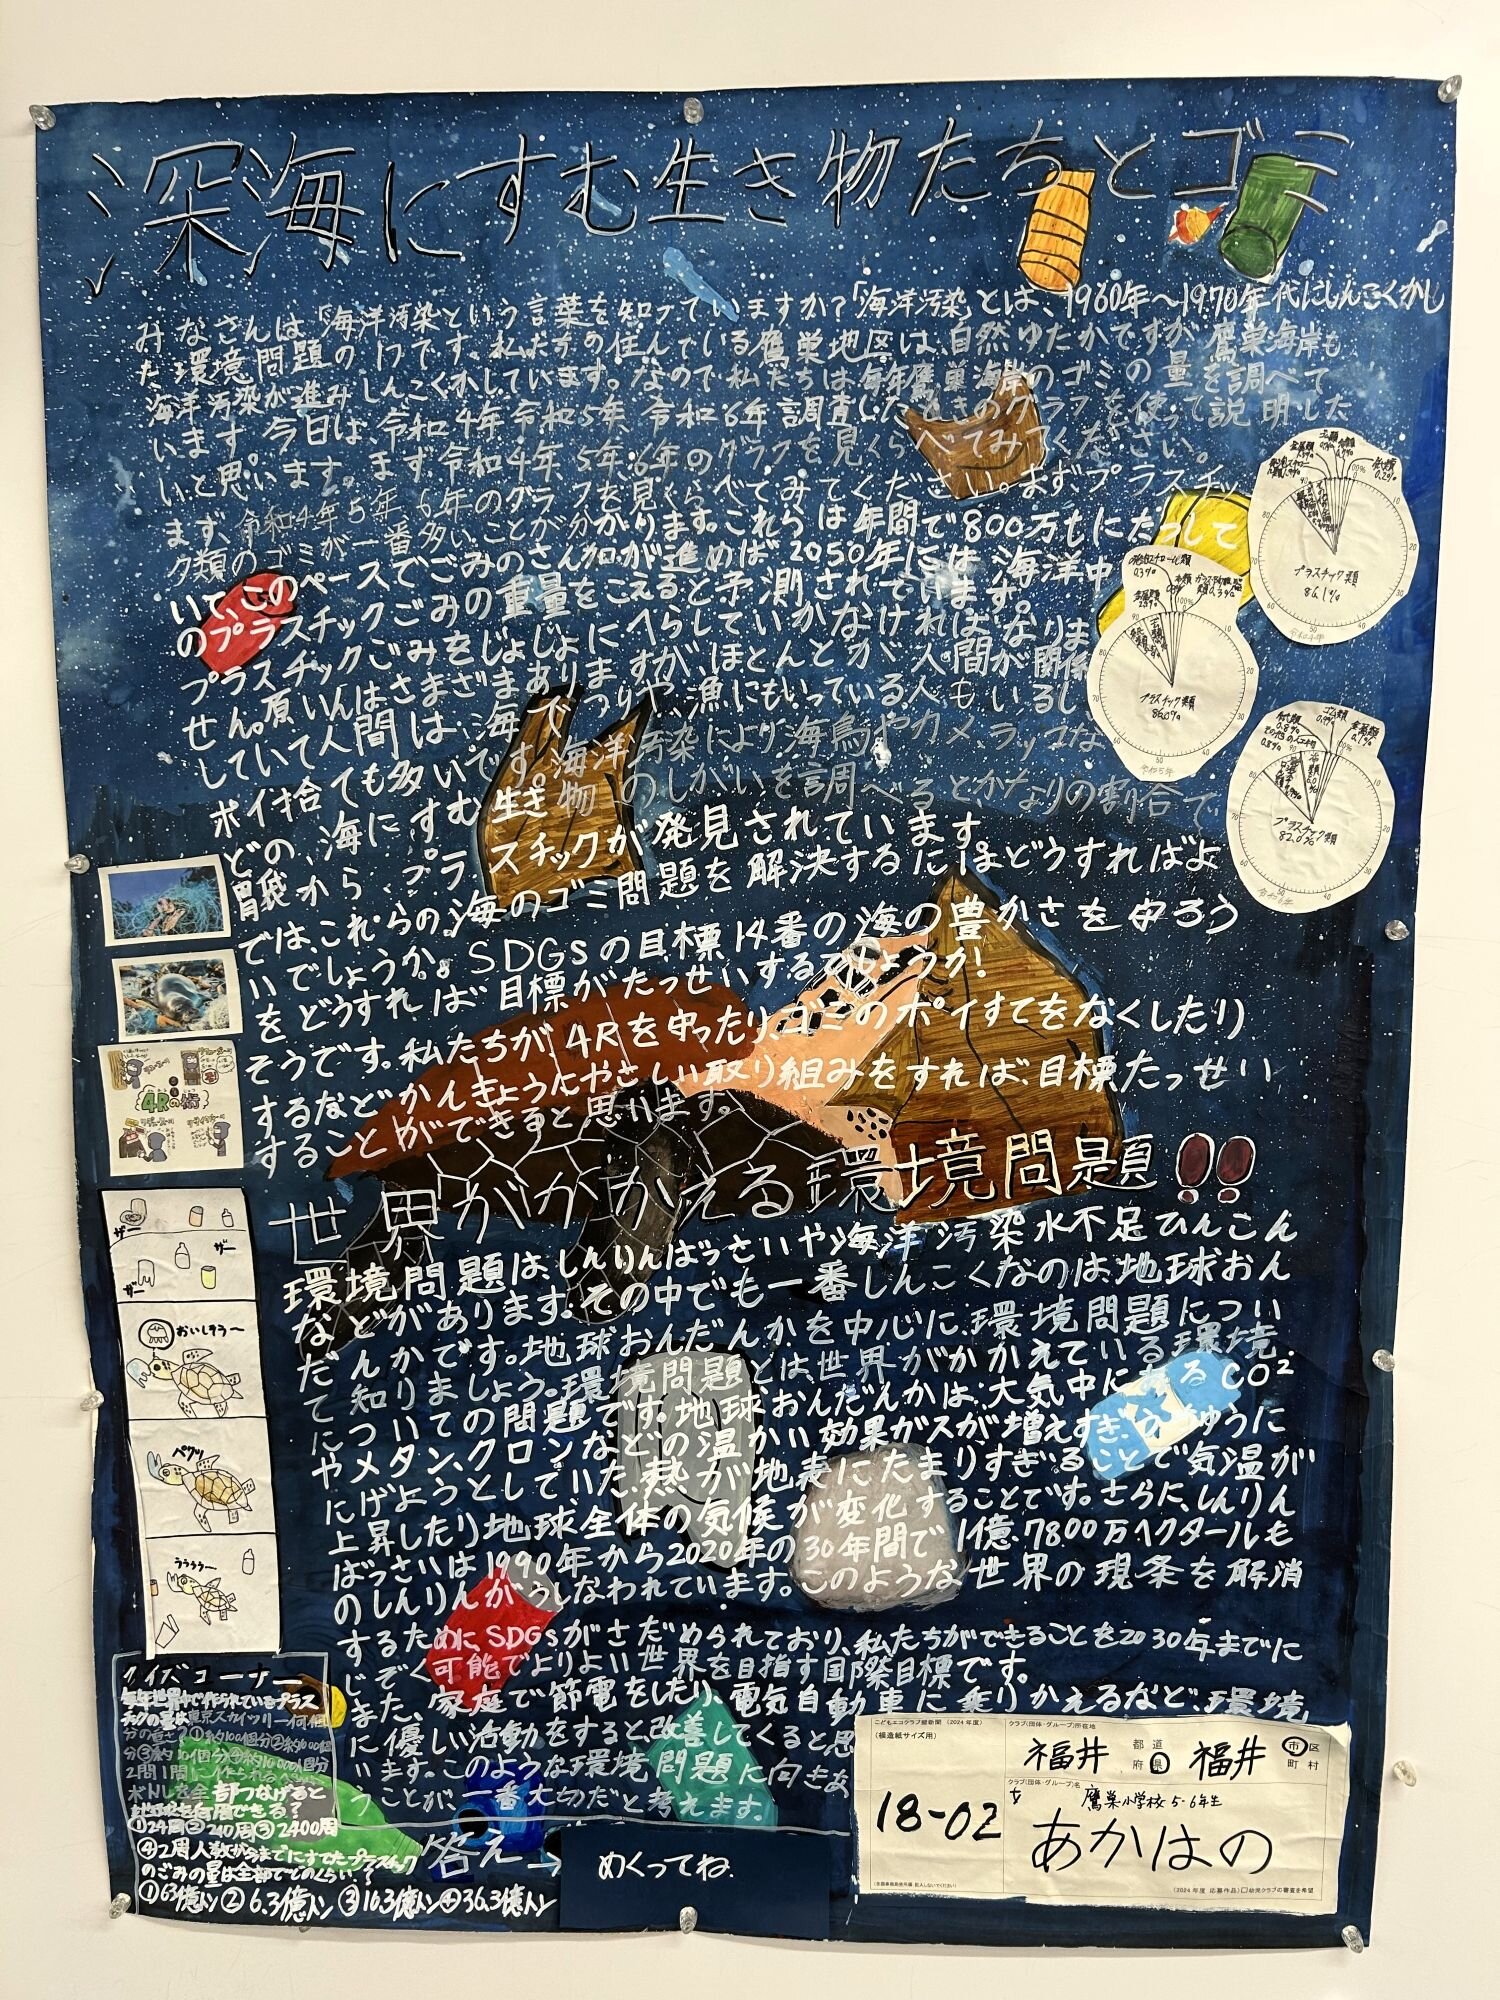 深海にすむ生き物たちとゴミ
みなさんは「海洋汚染という言葉を知っていますか?「海洋汚染」とは、1960年〜1970年代にしんこくかし
た環境問題の1つです。私たちの住んでいる鷹巣地区は、自然ゆたかですが鷹巣海岸も
海洋汚染が進みしんこくかしています。なので私たちは毎年鷹巣海岸のゴミの量を調べて
います。今日は、令和4年令和5年、令和6年調査したときのグラフを使って説明した
いと思います。まず令和4年、5年、6年のグラフを見くらべてみてください。
まず、令和4年5年6年のグラフを見くらべてみてください。まずプラスチッ
ク類のゴミが一番多いことが分かります。これらは年間で800万もにたっして
いて、このペースでごみのさん加が進めば2050年には、海洋中
のプラスチックごみの重量をこえると予測されています。
プラスチックごみをじょじょにへらしていかなければなりま
せん。原いんはさまざまありますがほとんどが人間が関係
していて人間は、海でつりや、漁にもいっている人もいるし、
ポイ捨ても多いです。海洋汚染により、海鳥やカメ、ラッコな
どの、海にすむ生き物のしがいを調べるとかなりの割合で
胃袋から、プラスチックが発見されています。
では、これらの海のゴミ問題を解決するにはどうすればよ
いでしょうか。SDGsの目標14番の海の豊かさを守ろう
をどうすれば目標がたっせいするでしょうか!
そうです。私たちが、4Rを守ったり、ゴミのポイすてをなくしたり
するなどかんきょうにやさしい取り組みをすれば、目標たっせい
することができると思います。
世界がかかえる環境問題!!
環境問題は、しんりんばっさいや海洋汚染水不足ひんこん
などがあります。その中でも一番しんこくなのは、地球おん
だんかです。地球おんだんかを中心に、環境問題につい
て知りましょう。環境問題とは世界がかかえている環境
についての問題です。地球おんだんかは、大気中にあるCO²
やメタン、クロンなどの温かい効果ガスが増えすぎ、うちゅうに
にげようとしていた、熱が地表にたまりすぎることで気温が
上昇したり地球全体の気候が変化することです。さらに、しんりん
ばっさいは1990年から2020年の30年間で1億7800万ヘクタールも
のしんりんがうしなわれています。このような世界の現条を解消
するためにSDGsがさだめられており、私たちができることを2030年までに
じぞく可能でよりよい世界を目指す国際目標です。
また、家庭で節電をしたり、電気自動車に乗りかえるなど、環境
に優しい活動をすると改善してくると思
います。このような環境問題に向きあ
うことが一番大切だと考えます。
ゴム類
プラスチック類
86.1%
令和4年
発泡スチロール類
0.3%
プラスチック類
86.0%
令和5年
ゴム類
プラスチック類
82.0%
令和6年
4Rの術
ザー
ザー
ザー
おいしそう〜
パクリ
うううう〜
クイズコーナー
毎年世界中で作られているプラス
チックの量は東京スカイツリー何個
分の重さ?①約100個分②約1000個
分③約10個分④約10000個分
部つなげると
地球を何周できる?
①24周②240周③2400周
④2周人類が今までにすてたプラスチック
のごみの量は全部でどのくらい?
①63億トン②6.3億トン③16.3億トン④36.3億トン
答え→
めくってね。
こどもエコクラブ壁新聞 (2024年度)
(模造紙サイズ用)
18-02
クラブ(団体・グループ)所在地
福井 都道府県 福井 市区町村
クラブ(団体・グループ)名
鷹巣小学校5・6年生
あかはの
(2024年度 応募作品) □幼児クラブの審査を希望